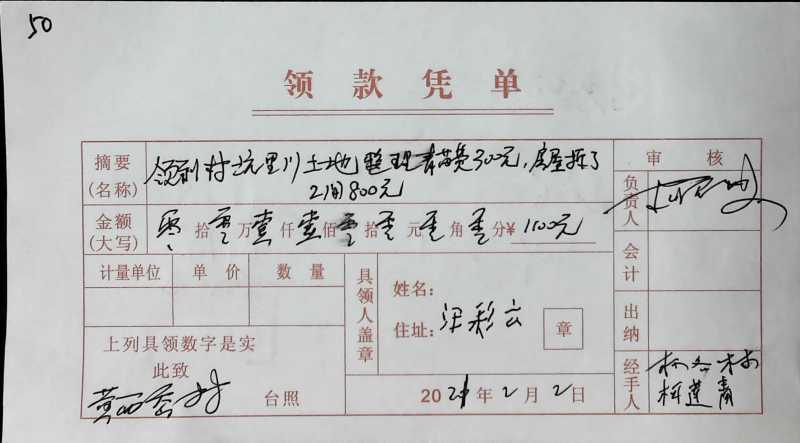 50
领款凭单
摘要
(名称)
领到村坑里川土地整理青苗费300元,房屋拆了
2间800元
审核
负责人
金额
(大写)
零拾零万壹仟壹佰零拾零元零角零分¥1100元
计量单位 单价 数量
具领人盖章
姓名:
住址:
梁彩云
章
会计
出纳
上列具领数字是实
此致
台照
2021年2月2日
经手人